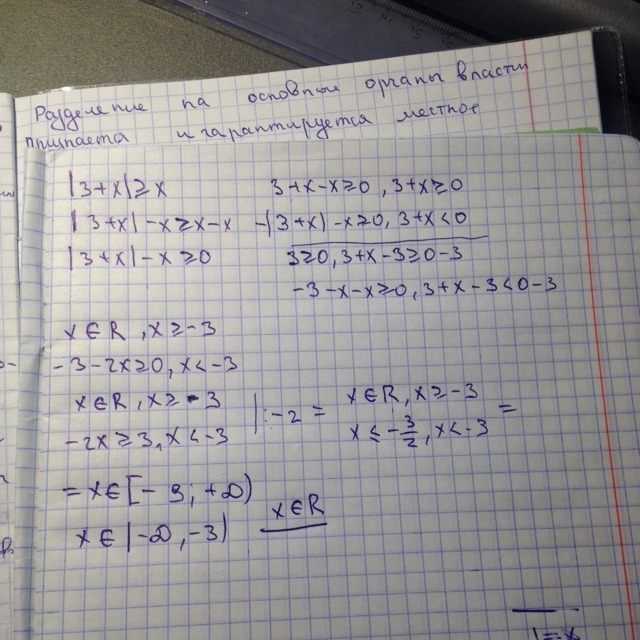 Разделение на основной органы власти
признается и гарантируется местное
|3+x|≥x
|3+x|-x≥x-x
|3+x|-x≥0
3+x-x≥0, 3+x≥0
-(3+x)-x≥0, 3+x<0
3≥0, 3+x-3≥0-3
-3-x-x≥0, 3+x-3<0-3
x∈R, x≥-3
-3-2x≥0, x<-3
x∈R, x≥-3
-2x≥3, x<-3
|:-2 =
x∈R, x≥-3
x≤-3/2, x<-3
=
=x∈[-3; +∞)
x∈(-∞, -3)
x∈R